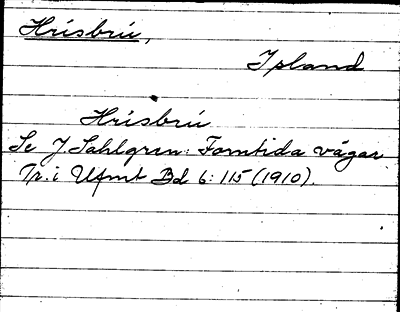 Hrísbrú,
Island
Hrísbrú
Se J. Sahlgren: Forntida vägar
Tr. i Ufmt Bd 6: 115 (1910).